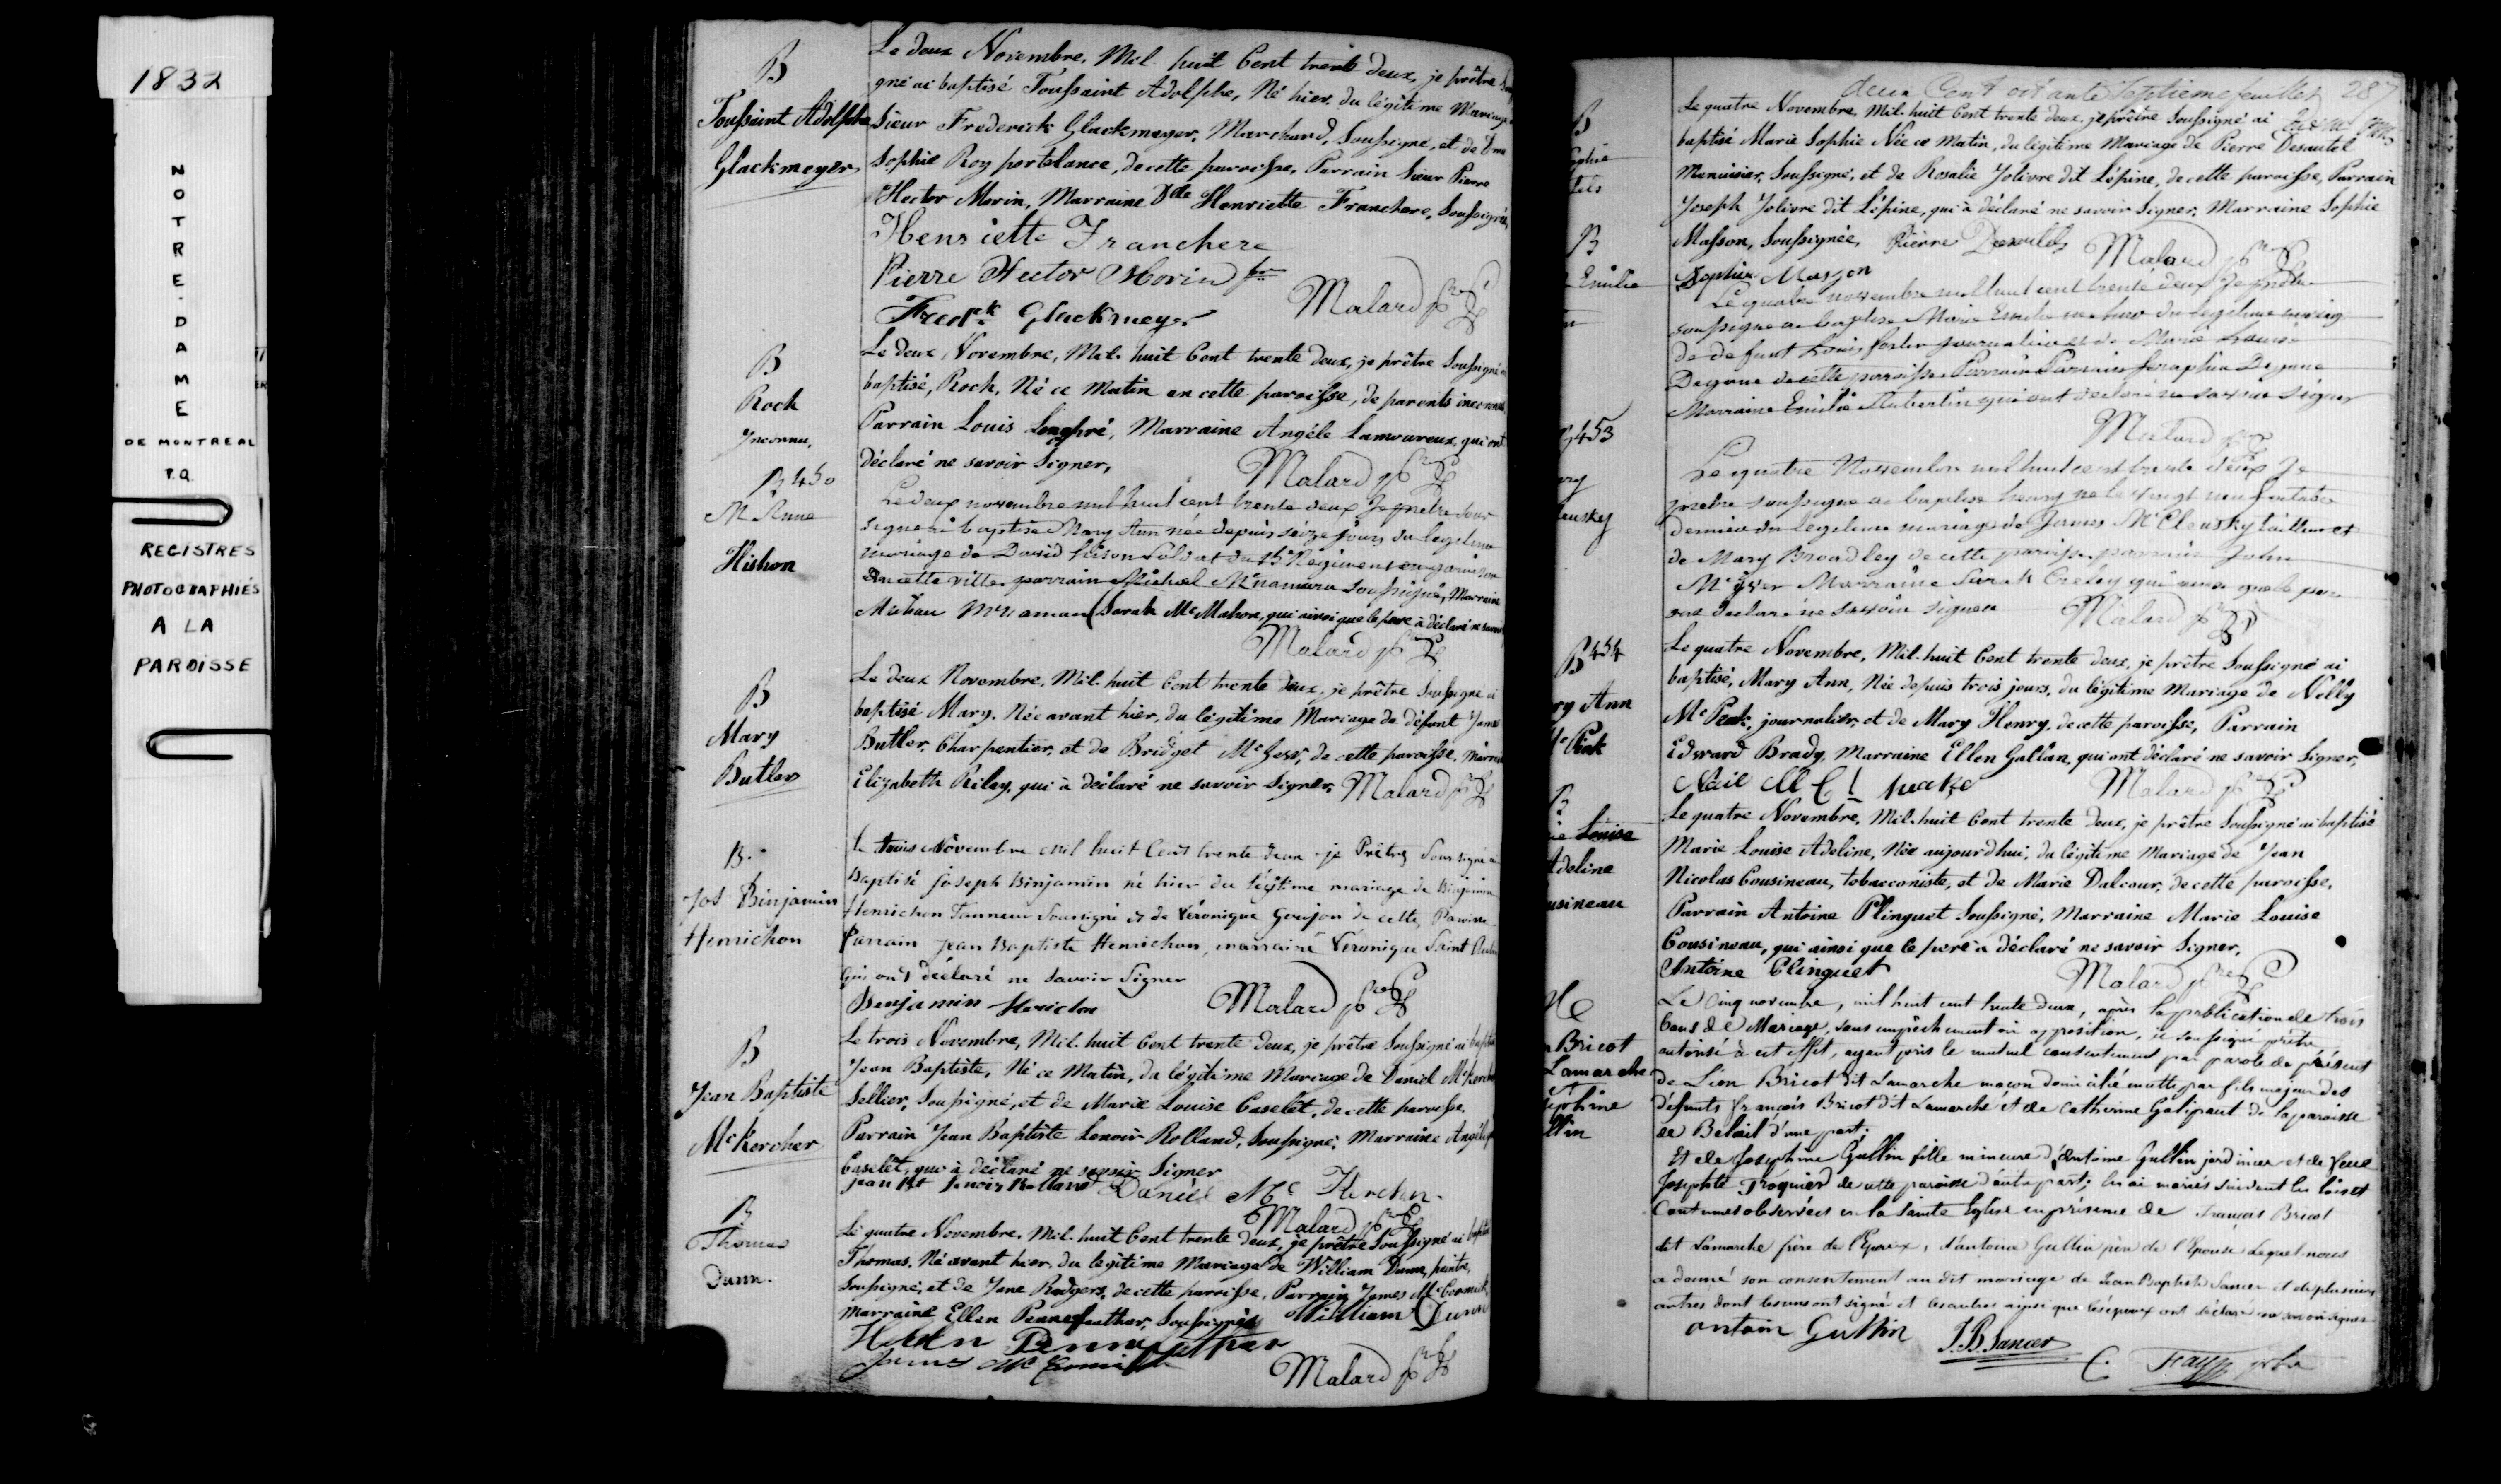 1832
NOTRE-DAME
DE MONTREAL
P.Q.
REGISTRES
PHOTOGRAPHIÉS
A LA
PAROISSE
B
Toussaint Adolphe
Glackmeyer
Le deux Novembre, Mil-huit Cent trente deux, je prêtre
gné ai baptisé Toussaint Adolphe, Né hier, du légitime Mariage
Sieur Frederick Glackmeyer, Marchand, Soussigné, et de
Sophie Roy portelance, de cette paroisse, Parrain Sieur Pierre
Hector Morin, Marraine Dlle Henriette Franchere, Soussignés,
Henriette Franchere
Pierre Hector Morin
Fredk Glackmeyer Malard ptre
B
Roch
Inconnu,
Le deux Novembre, Mil-huit Cent trente deux, je prêtre Soussigné ai
baptisé, Roch, Né ce Matin en cette paroisse, de parents inconnus
Parrain Louis Longpré, Marraine Angèle Lamoureux, qui ont
déclaré ne savoir Signer, Malard ptre
B 450
M Anne
Hishon
Le deux novembre mil huit cent trente deux Je prêtre sous
signé ai baptisé Mary Ann née depuis séize jours du legitime
mariage de David hison Soldat du 15 Regiment en garnison
En cette ville parrain Michael McNamara soussigné, Marraine
Sarah McMahon, qui ainsi que le pere à déclaré ne savoir
Malard ptre
B
Mary
Butler
Le deux Novembre, Mil-huit Cent trente deux, je prêtre Soussigné ai
baptisé Mary, Née avant hier, du légitime Mariage de défunt James
Butler, Charpentier, et de Bridget, de cette paroisse,
Elizabeth Riley, qui à déclaré ne savoir Signer, Malard ptre
B.
Jos Binjamin
Henrichon
le trois Novembre mil huit Cent trente deux je Prêtre Soussigné ai
Baptisé Joseph Binjamin né hier du légitime mariage de Binjamin
Henrichon Tanneur Soussigné et de Véronique Goujon de cette Paroisse
Parrain Jean Baptiste Henrichon, marraine Véronique Saint
qui ont déclaré ne Savoir Signer
Benjamin Malard ptre
B
Jean Baptiste
McKercher
Le trois Novembre, Mil-huit Cent trente deux, je prêtre Soussigné ai baptisé
Jean Baptiste, Né ce Matin, du légitime Mariage de Daniel McKercher
Sellier, Soussigné, et de Marie Louise Caselêt, de cette paroisse,
Parrain Jean Baptiste Lenoir Rolland, Soussigné, Marraine
Caselêt, qui à déclaré ne savoir Signer
jean Bt Lenoir Rolland Daniel Mc Kercher
Malard ptre
B
Thomas
Dunn.
Le quatre Novembre, Mil-huit Cent trente deux, je prêtre Soussigné ai baptisé
Thomas, Né avant hier, du légitime Mariage de William Dunn, peintre,
Soussigné, et de Jane Rodgers, de cette paroisse, Parrain James McCormick
Marraine Ellen Pennefeather, Soussignés William Dunn
Helen Pennefather
James Mc Malard ptre
deux Cent octante Septième feuillet 287
B
Le quatre Novembre, Mil-huit Cent trente deux, je prêtre Soussigné ai
baptisé Marie Sophie Née ce Matin, du légitime Mariage de Pierre Desautel
Menuisier, Soussigné, et de Rosalie Jolivre dit Lépine, de cette paroisse, Parrain
Joseph Jolivre dit Lépine, qui à déclaré ne savoir Signer, Marraine Sophie
Masson, Soussignée, Pierre Desautels Malard ptre
Sophie Masson
B
Emilie
Le quatre novembre mil huit cent trente deux Je prêtre
soussigné ai baptisé Marie Emilie née hier du legitime mariage
de defunt Louis fortin journalier et de Marie Louise
Dagone de cette paroisse Parrain Seraphin Dagone
Marraine Emilie Aubertin qui ont déclaré ne savoir signer
Malard ptre
453
Le quatre Novembre mil huit cent trente deux Je
prêtre soussigné ai baptisé henry né le vingt neuf octobre
dernier du legitime mariage de James McClousky tailleur et
de Mary Broadley de cette paroisse parrain John
Marraine Sarah qui ainsi que le pere
ont déclaré ne savoir signer Malard ptre
B 454
ry Ann
Le quatre Novembre, Mil-huit Cent trente deux, je prêtre Soussigné ai
baptisé, Mary Ann, Née depuis trois jours, du légitime Mariage de Nelly
McPeak, journalier, et de Mary Henry, de cette paroisse, Parrain
Edward Brady, Marraine Ellen Gallan, qui ont déclaré ne savoir Signer,
Malard ptre
B
Louise
Adeline
usineau
Le quatre Novembre, Mil-huit Cent trente deux, je prêtre Soussigné ai baptisé
Marie Louise Adeline, Née aujourd'hui, du légitime Mariage de Jean
Nicolas Cousineau, tobacconiste, et de Marie Dalcour, de cette paroisse,
Parrain Antoine Plinguet Soussigné, Marraine Marie Louise
Cousineau, qui ainsi que le pere à déclaré ne savoir Signer,
Antoine Plinguet Malard ptre
M
Bricot
Lamarche
et
Le Cinq novembre, mil huit cent trente deux, après la publication de trois
bans de Mariage, sans empêchement ni opposition, je soussigné prêtre
autorisé à cet effet, ayant pris le mutuel consentement par parole de présent
de Léon Bricot dit Lamarche maçon domicilié en cette par. fils majeur des
défunts françois Bricot dit Lamarche et de Catherine Galipaut de la paroisse
de Belœil d'une part;
Et de Josephine Gullin fille mineure d'Antoine Gullin jardinier et de feue
Josephte Troquier de cette paroisse d'autre part; les ai mariés suivant les loix et
Coutumes observées en la Sainte Eglise en présence de François Bricot
dit Lamarche frère de l'Epoux, d'antoine Gullin père de l'Epouse lequel nous
a donné son consentement au dit mariage de Jean Baptiste Sancer et de plusieurs
autres dont les uns ont signé et les autres ainsi que les époux ont déclaré ne savoir signer
antoin Gullin J.B. Sancer
C. Fay ptre